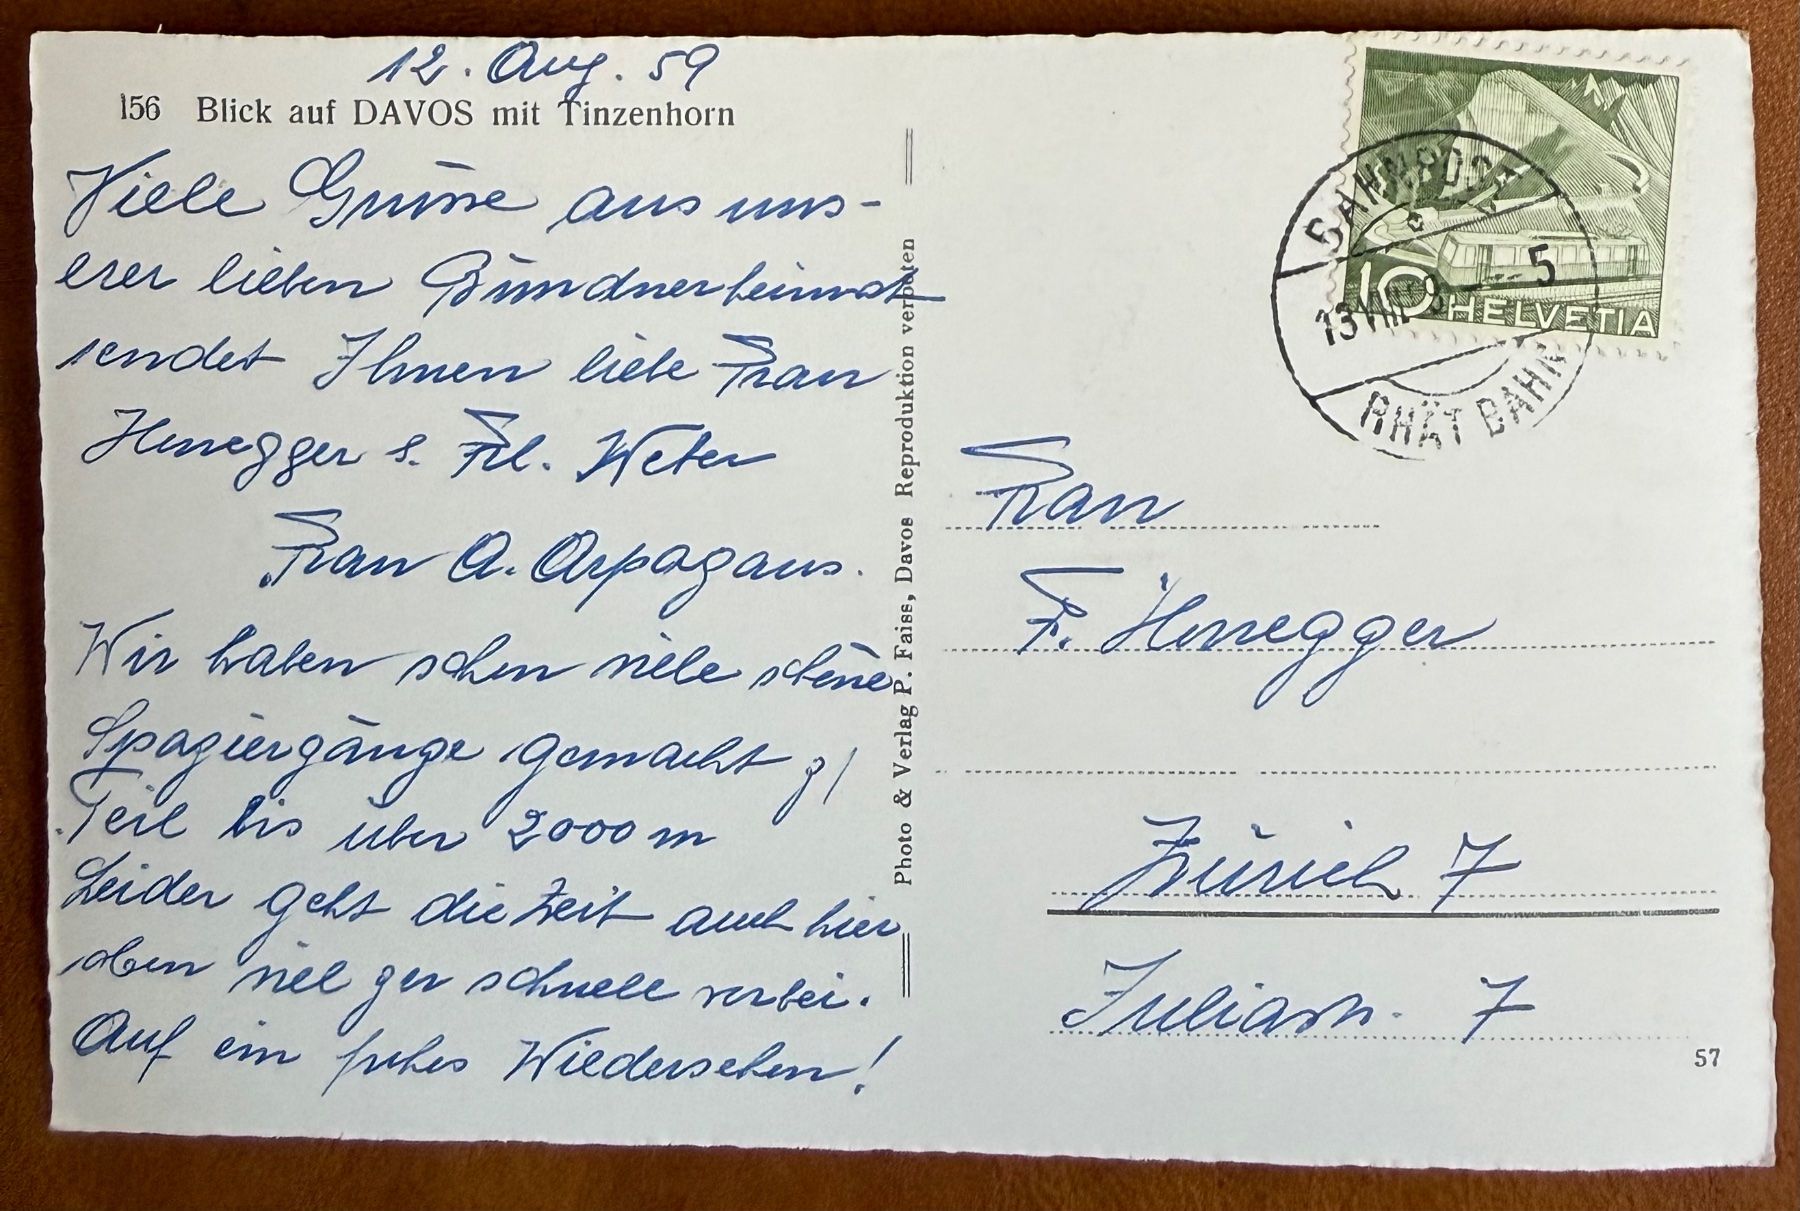 12. Aug. 59
156 Blick auf DAVOS mit Tinzenhorn
Viele Grüsse aus uns-
erer lieben Bündnerheimat
sendet Ihnen liebe Frau
Honegger & Frl. Weber
Frau A. Arpagaus.
Wir haben schon viele schöne
Spaziergänge gemacht z/
Teil bis über 2000 m
Leider geht die Zeit auch hier
oben viel zu schnell vorbei.
Auf ein frohes Wiedersehen!
Photo & Verlag P. Faiss, Davos Reproduktion verboten
10 HELVETIA
BAHNPOST
c
13 VIII 5
RHÄT BAHN
Frau
F. Honegger
Zürich 7
7
57